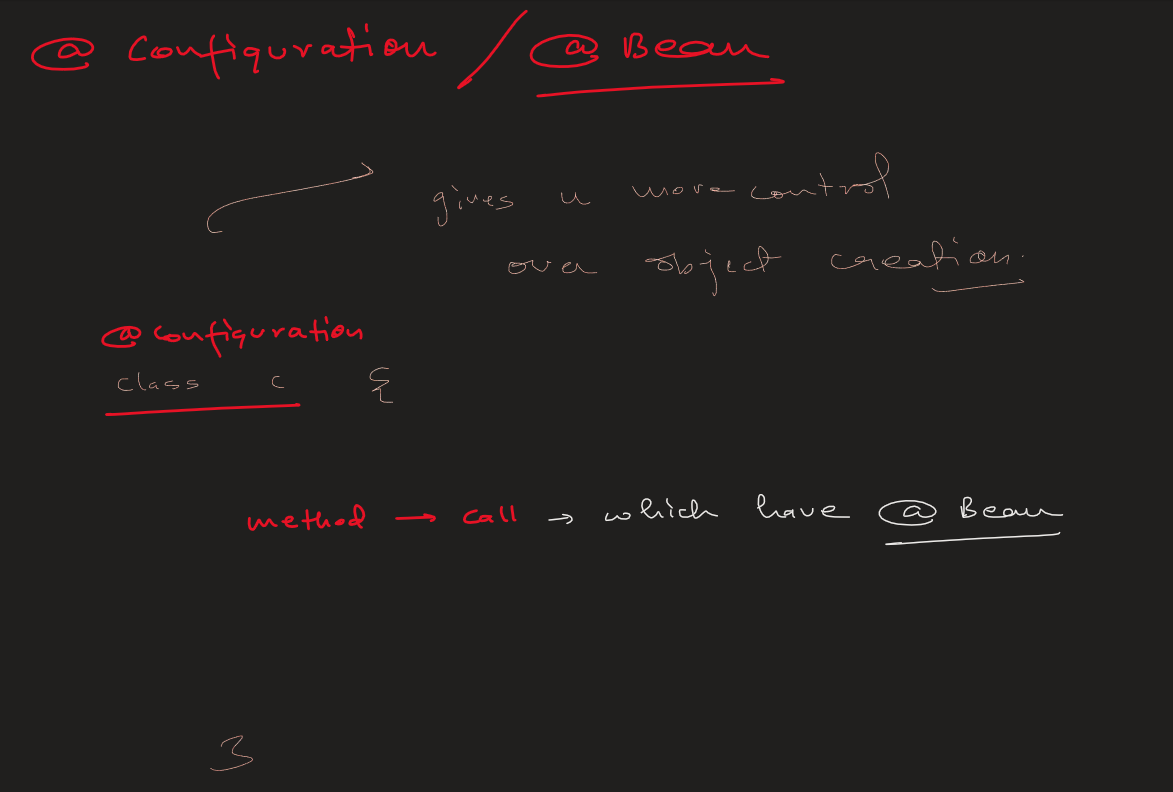 @ Configuration / @ Bean
→ gives u more control
over object creation.
@ configuration
class c {
method → call → which have @ Bean
}